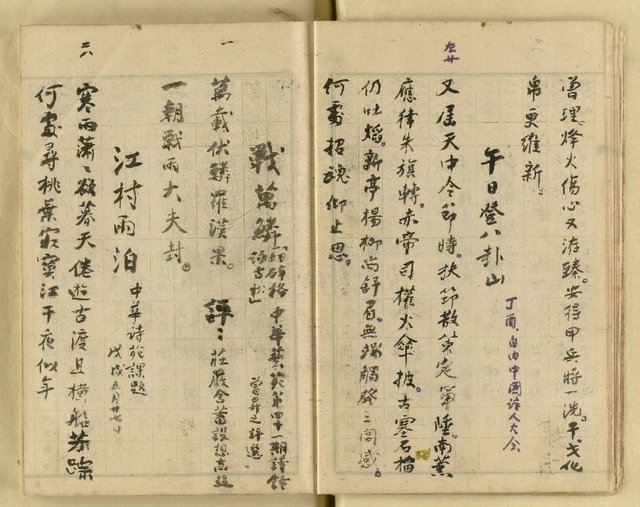 曾理烽火傷心又洊臻安得甲兵將一洗干戈化
帛更維新。
午日登八卦山
丁酉、自由中國詩人大會
又屆天中令節時。扶笻散策定軍陲。南薰
應律朱旗轉。赤帝司權火傘披。古寨石榴
仍吐燄。新亭楊柳尚舒眉。無端觸發三閭感。
何處招魂仰止思。
廿
戰萬鱗
詠古松」
中華藝苑第四十一期詩鐘
曾今可之評選
萬載伏鱗羅漢果。
評：莊嚴含蓄設想高超
一朝戰雨大夫封。
江村雨泊
中華詩苑課題
戊戌五月廿七日
寒雨蕭ミ欲暮天倦遊古渡且橫船苔蹤
何處尋桃葉寂寞江干夜似年
一
二八